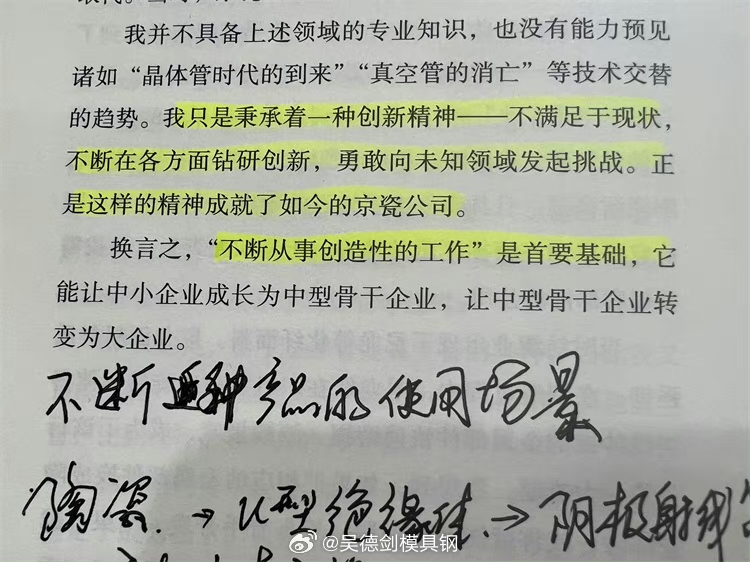 我并不具备上述领域的专业知识，也没有能力预见
诸如“晶体管时代的到来”“真空管的消亡”等技术交替
的趋势。我只是秉承着一种创新精神——不满足于现状，
不断在各方面钻研创新，勇敢向未知领域发起挑战。正
是这样的精神成就了如今的京瓷公司。
换言之，“不断从事创造性的工作”是首要基础，它
能让中小企业成长为中型骨干企业，让中型骨干企业转
变为大企业。
不断 产品的使用场景
陶瓷 → U型绝缘 → 阴极射线
@吴德剑模具钢